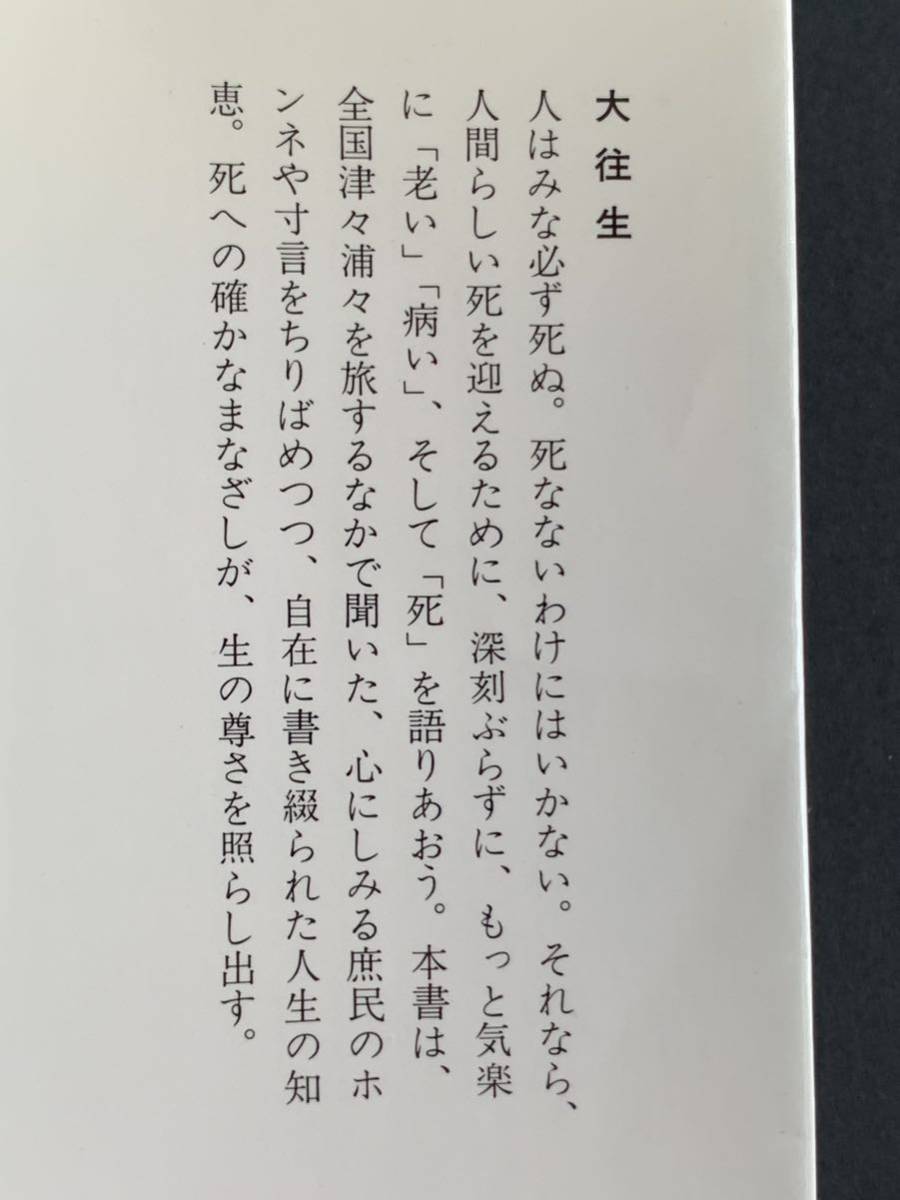 大往生
人はみな必ず死ぬ。死なないわけにはいかない。それなら、
人間らしい死を迎えるために、深刻ぶらずに、もっと気楽
に「老い」「病い」、そして「死」を語りあおう。本書は、
全国津々浦々を旅するなかで聞いた、心にしみる庶民のホ
ンネや寸言をちりばめつつ、自在に書き綴られた人生の知
恵。死への確かなまなざしが、生の尊さを照らし出す。